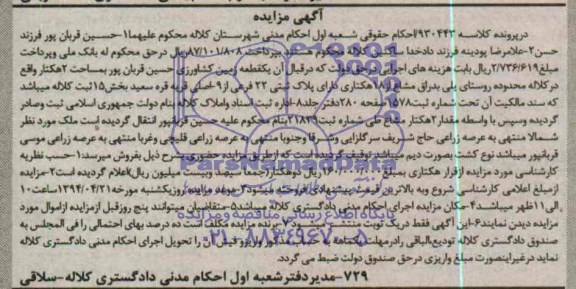 آگهی مزایده
درپرونده کلاسه ۹۳۰۴۴۳/احکام حقوقی شعبه اول احکام مدنی شهرستان کلاله محکوم علیهما۱-حسین قربان پور فرزند
حسن۲-غلامرضا پودینه فرزند دادخدا ساکنین کلاله محکوم هستند بپرداخت ۸۷/۱۰۱/۸۰۸ریال درحق محکوم له بانک ملی وپرداخت
مبلغ۲/۷۳۶/۶۱۹ریال بابت هزینه های اجرایی درحق دولت که درقبال آن یکقطعه زمین کشاورزی حسین قربان پور بمساحت ۲هکتار واقع
درکلاله محدوده روستای یلی بدراق مشاع از۱۸هکتاری دارای پلاک ثبتی ۲۲ فرعی از۹ اصلی قریه قره سعید بخش۱۵ثبت کلاله میباشد
که سند مالکیت آن تحت شماره ثبت۱۵۷۸صفحه ۲۸۰دفتر جلد۸-اداره ثبت اسناد واملاک کلاله بنام دولت جمهوری اسلامی ثبت وصادر
گردیده وسپس با واسطه مقدار۲هکتار مشاع طی شماره ثبت۲۱۸۳۹بنام محکوم علیه حسین قربانپور انتقال گردیده است ملک مورد نظر
شمالا منتهی به عرصه زراعی حاج شریف سرگلزایی وشرقا وجنوبا منتهی به عرصه زراعی قلیچی وغربا منتهی به عرصه زراعی موسی
قربانپور میباشد نوع کشت بصورت دیم میباشد توقیف گردیده است که ازطریق مزایده حضوری بشرح ذیل بفروش میرسد:۱-حسب نظریه
کارشناسی مورد مزایده ازقرار هکتاری بمبلغ ریال دوهکتار(جمعا سیصد وبیست میلیون ریال)اعلام گردیده است۲-مزایده
ازمبلغ اعلامی کارشناسی شروع وبه بالاترین قیمت پیشنهادی فروخته میشود۳-موعد مزایده روزیکشنبه مورخه۱۳۹۴/۰۴/۲۱ساعت۱۰
الی۱۱ظهر میباشد۴-مکان مزایده اجرای احکام مدنی دادگستری کلاله میباشد۵-متقاضیان میتوانند پنج روزقبل ازمزایده ازاموال مورد
مزایده دیدن نمایند۶-این آگهی فقط دریک نوبت منتشر میشود۷-برنده مزایده مکلف است ده درصد بهای احتمالی را فی المجلس به
صندوق دادگستری کلاله تودیع‌الباقی رادرمهلت یکماهه به حساب مذکور واریز وفیش آن را تحویل اجرای احکام مدنی دادگستری کلاله
نماید درغیراینصورت مبلغ واریزی درحق صندوق دولت ضبط می گردد.
۷۲۹-مدیردفترشعبه اول احکام مدنی دادگستری کلاله-سلاقی
ParsNamadData
پایگاه اطلاع رسانی مناقصه و مزایده
۰۲۱-۸۸۳۴۹۶۷۰-۵